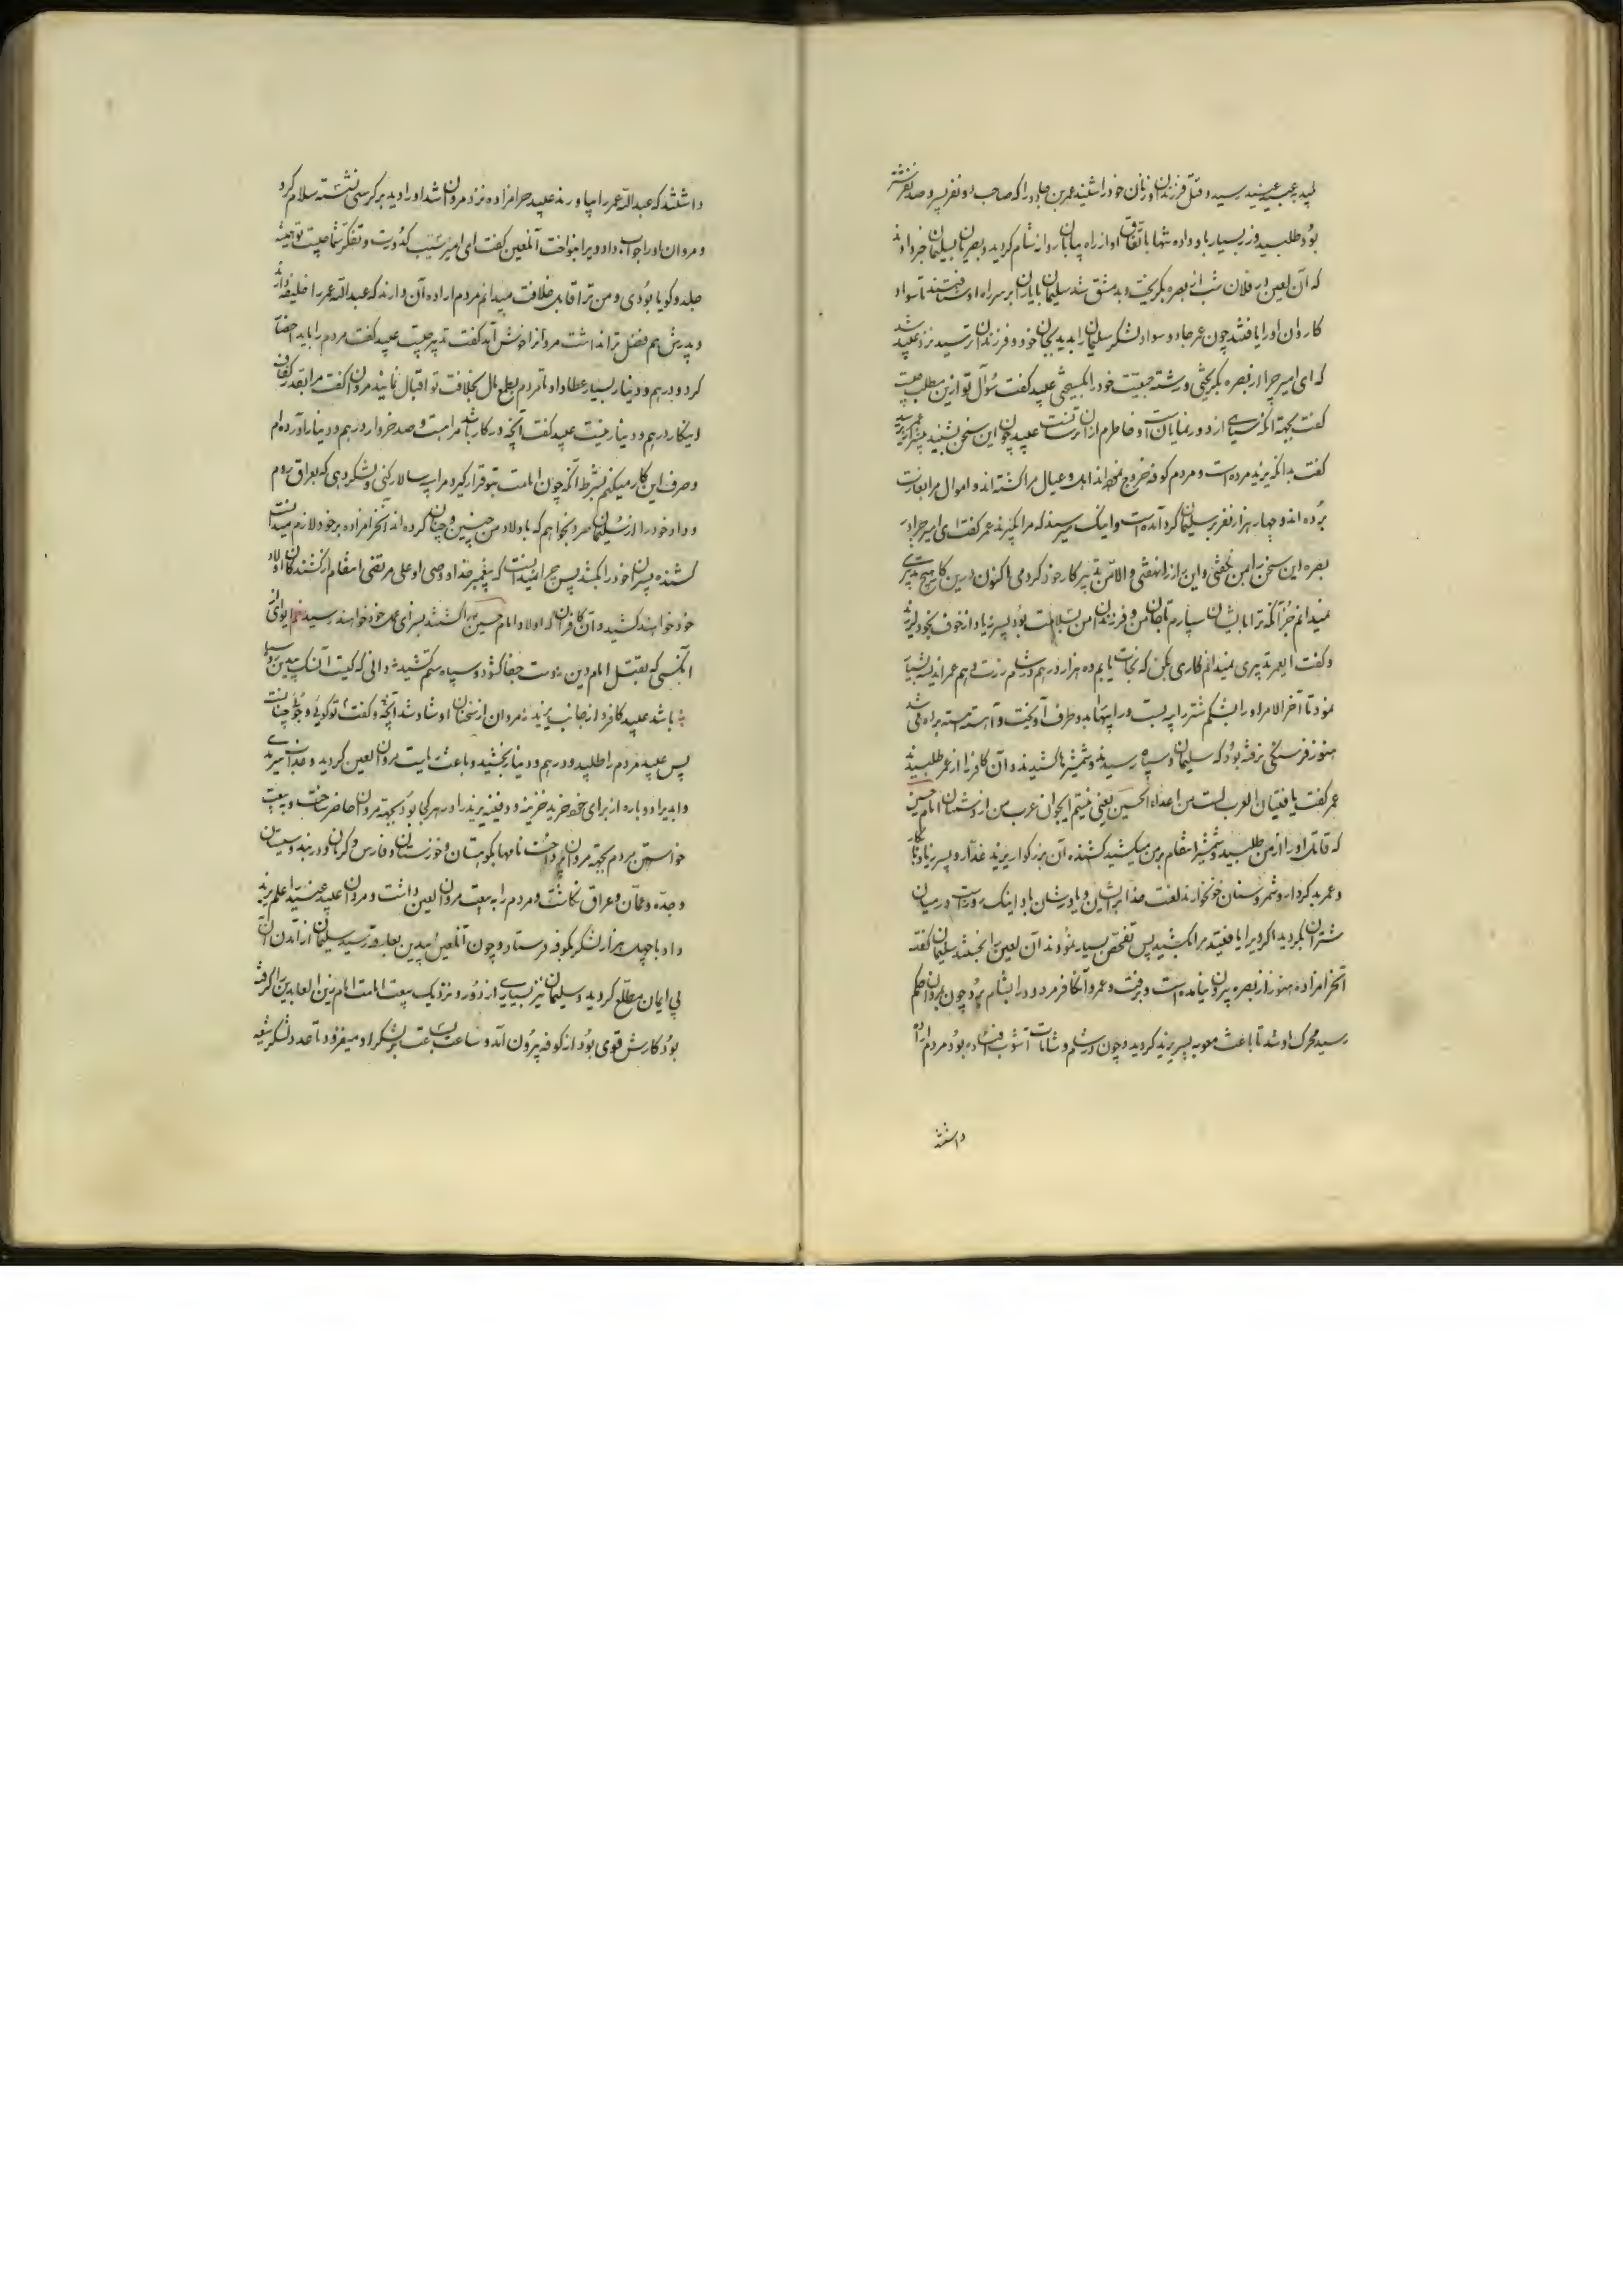 پلید عبید رسید و قتل فرزندان و زنان خود را شنید عمر بن جارود را که صاحب دو نفر پسر و صد نفر شتر
بود طلبید و زر بسیار باو داده شبها باتفاق او از راه بیابان روانه شام گردید و بصریان بسلیمان خبر دادند
که آن لعین در فلان شب از بصره بگریخت و بدمشق شد سلیمان با یاران بر سر راه او شتافتند تا سواد
کاروان او را یافتند چون عمر جارود سواد لشکر سلیمان را بدید بجان خود و فرزندان ترسید نزد عبید شد
که ای امیر چرا از بصره بگریختی و رشته جمعیت خود را گسیختی عبید گفت سؤال تو ازین مطلب چیست
گفت بجهة آنکه سیاهی از دور نمایانست و خاطرم از آن ترسانست عبید چون این سخن بشنید
گفت بدانکه یزید مرده است و مردم کوفه خروج نموده‌اند اهل و عیال مرا کشته‌اند و اموال مرا بغارت
برده‌اند و چهار هزار نفر بر سلیمان گرد آمده است و اینک میرسند که مرا بگیرند عمر گفت ای امیر چرا در
بصره این سخن را بمن نگفتی و این راز را نهفتی و الا من تدبیر کار خود کردمی اکنون درین کار هیچ تدبیری
نمیدانم جز آنکه ترا بایشان سپارم تا جان من و فرزندان من بسلامت بود پسر زیاد از خوف بخود لرزید
و گفت ای عمر تدبیری نمیدانم کاری بکن که نجات یابم ده هزار درهم در شام زرت دهم عمر اندیشه بسیار
نمود تا آخر الامر او را بشکم شتر رابه بست و راویتها بدو طرف آویخت و آهسته آهسته براه می‌شد
هنوز فرسنگی نرفته بود که سلیمان و سپاه رسیدند و شمشیرها کشیدند و آن کافر را از عمر طلبیدند
عمر گفت یا فتیان العرب لست من اعداء الحسین یعنی نیستم ایجوانان عرب من از دشمنان امام حسین
که قاتل او را از من طلبید و شمشیر انتقام بر من میکشید کشنده آن بزرگوار یزید غدار و پسر زیاد نابکار
و عمر بدکردار و شمر و سنان خونخوارند لعنت خدا بر ایشان و یاورشان باد اینک در میان
شتران بگردید اگر ویرا یافتید مرا بکشید پس تفحص بسیار نمودند آن لعین را نجستند سلیمان گفت
آنحرامزاده هنوز از بصره بیرون نیامده است و برفت و عمرو آن کافر مردود را بشام برد چون بمروان حکم
رسید محرک او شد تا باعث معویه پسر یزید گردید و چون در شام و شامات آشوب افتاده بود مردم اراده
داشتند
داشتند که عبدالله عمر را بیاورند عبید حرامزاده نزد مروان شد او را دید بر کرسی نشسته سلام کرد
و مروان او را جواب داد و ویرا بنواخت آن لعین گفت ای امیر سبب کدورت و تفکر شما چیست تو همیشه
جلد و گویا بودی و من ترا قابل خلافت میدانم مردم اراده آن دارند که عبدالله عمر را خلیفه دانند
و پدرش هم فضل ترا نداشت مروانرا خوش آمد گفت تدبیر چیست عبید گفت مردم را باید احضار
کرد و درهم و دینار بسیار عطا داد تا مردم بطمع مال بخلافت تو اقبال نمایند مروان گفت مرا بقدر کفاف
اینکار درهم و دینار نیست عبید گفت آنچه در کار باشد مراست و صد خروار درهم و دینار آورده‌ام
و صرف این کار میکنم بشرط آنکه چون امامت بتو قرار گیرد مرا سپه سالار کنی و لشکر دهی که بعراق روم
و داد خود را از سلیمان صرد بخواهم که با اولاد من چنین و چنان کرده‌اند آنحرامزاده بر خود لازم میدانست
کشنده پسران خود را بکشد پس چرا نمیدانست که پیغمبر خدا و وصی او علی مرتضی انتقام از کشندگان اولاد
خود خواهند کشید و آن کافران که اولاد امام حسین را کشتند بسزای عمل خود خواهند رسید نظم ایوای از
آنکسی که بقتل امام دین دست جفا گشود و سپاه ستم کشید دانی که کیست آن سگ بیدین روسیا
باشد عبید کافر و از جانب یزید مروان از سخنان او شاد شد آنچه و گفت تو گویی و جویی چنانست
پس عبید مردم را طلبید و درهم و دینار بخشید و باعث رایت مروان لعین گردید
وابه را دوباره از برای خود خرید خزینه و دفینه یزید را در هر کجا بود بجهة مروان حاضر ساخت و بیعت
خواستن مردم بجهة مروان پرداخت نامها بکوهستان و خوزستان و فارس و کرمان و دربند و سیستان
و جده و عمان و عراق نگاشت و مردم را به بیعت مروان لعین داشت و مروان عبید را علم یزید
داد با چهل هزار لشکر بکوفه فرستاد و چون آن لعین بیدین رسید سلیمان از آمدن آن
بی ایمان مطلع گردید و سلیمان نیز بسیاری از دور و نزدیک بیعت امامت امام زین العابدین را گرفته
بود کارش قوی بود از کوفه بیرون آمد و ساعت بساعت بر لشکر او میفزود تا عدد لشکر شیعه